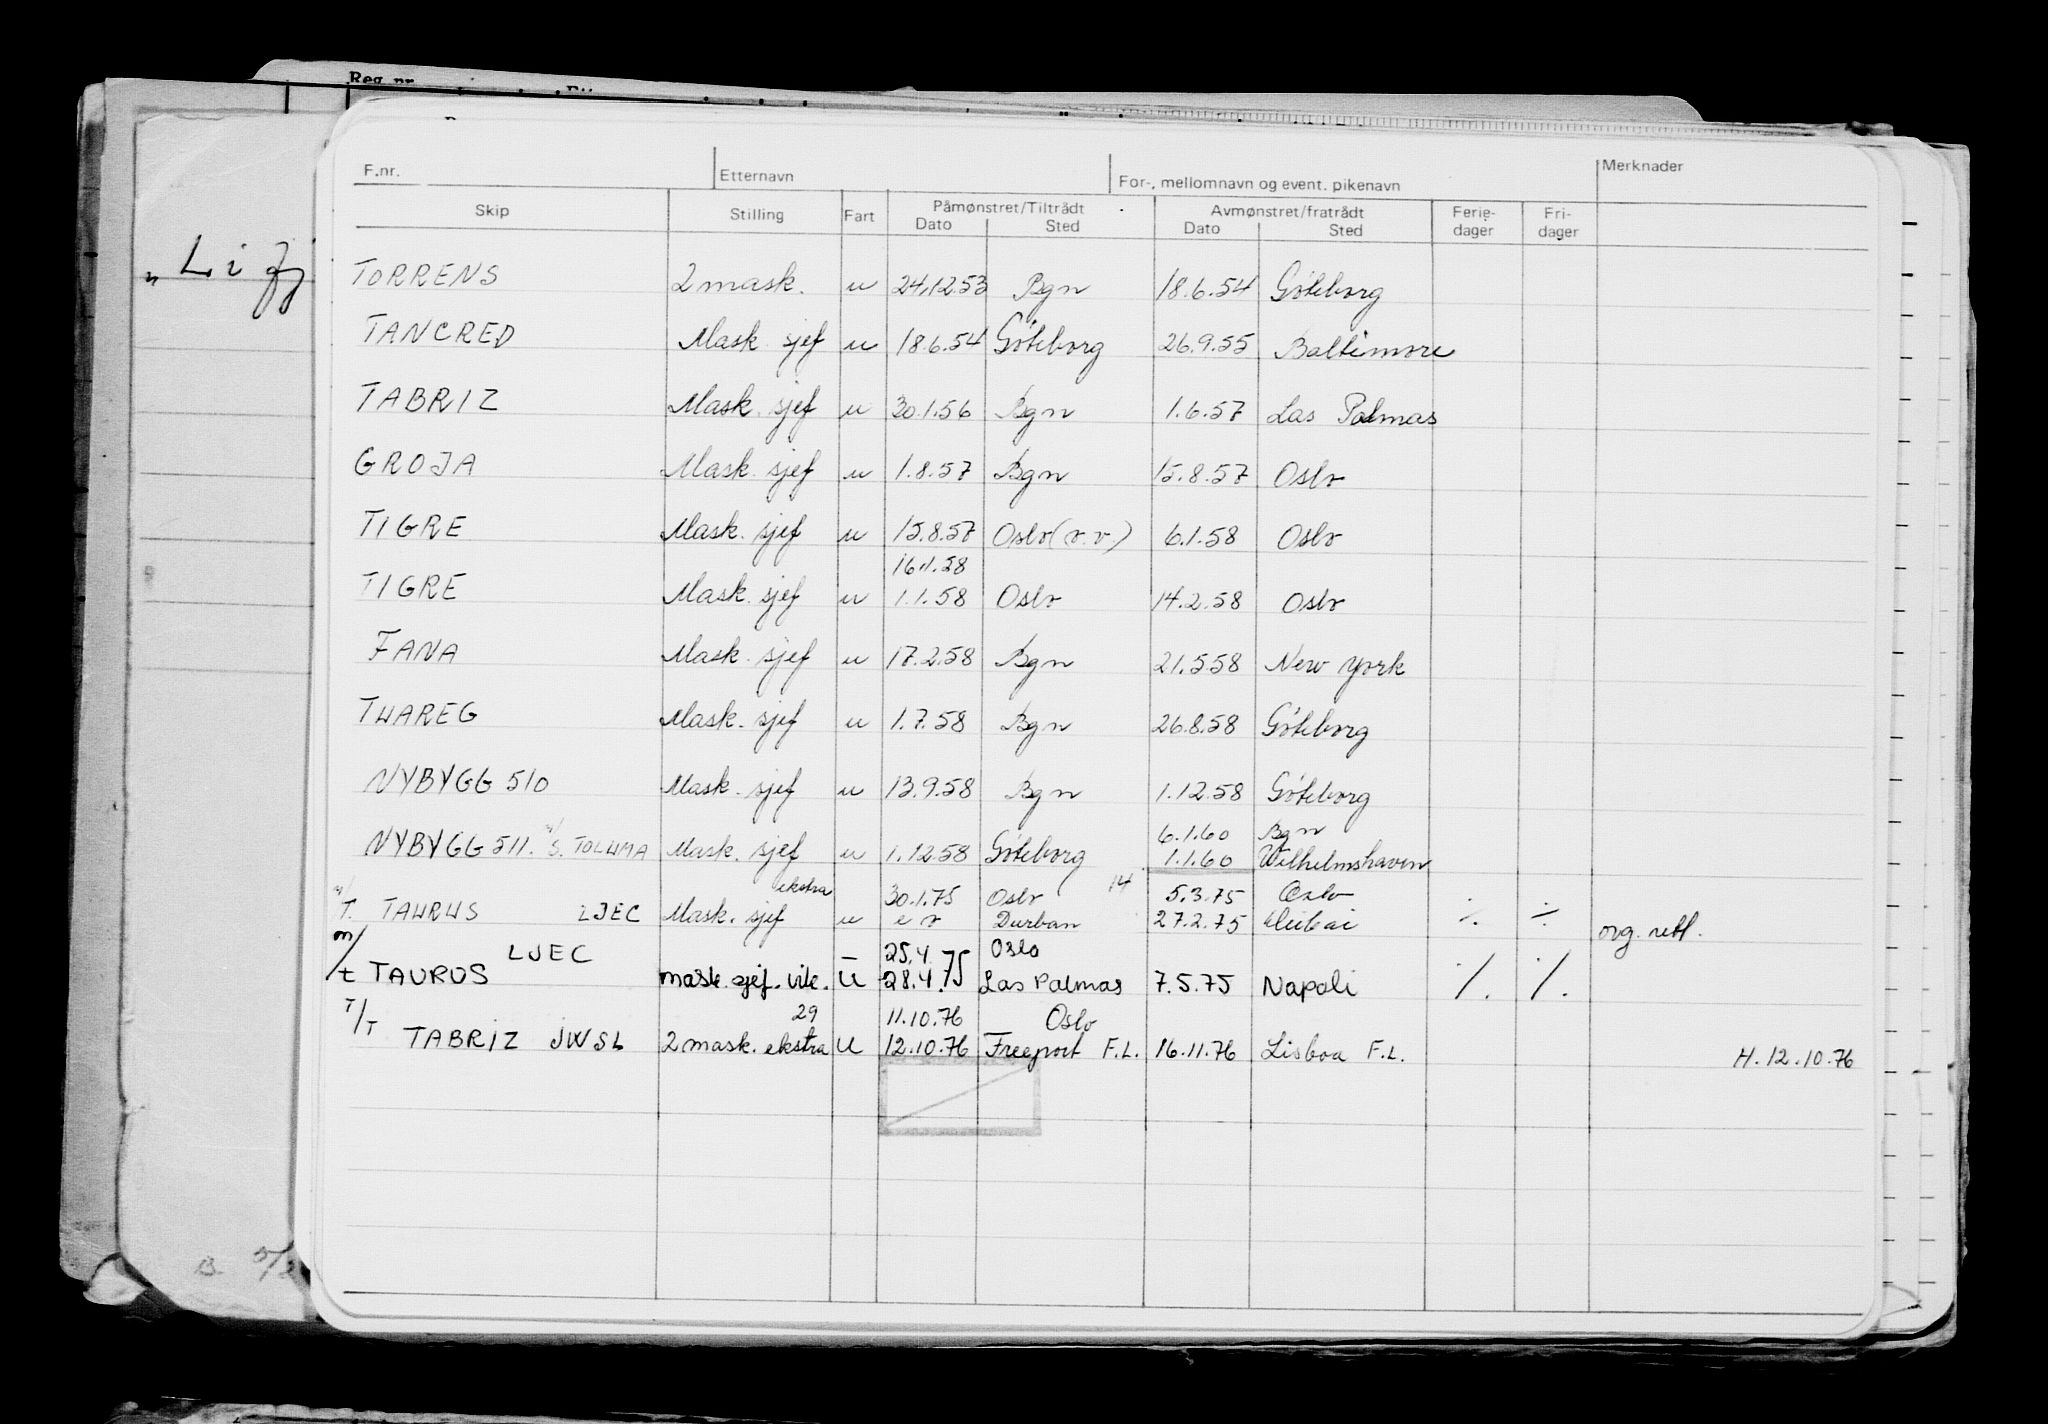 Reg. nr.
F.nr. Etternavn For-, mellomnavn og event. pikenavn Merknader
Skip Stilling Fart Påmønstret/Tiltrådt Avmønstret/fratrådt Ferie- Fri-
Dato Sted Dato Sted dager dager
TORRENS 2 mask. u 24.12.53 Bgn 18.6.54 Göteborg
TANCRED Mask sjef u 18.6.54 Göteborg 26.9.55 Baltimore
TABRIZ Mask. sjef u 30.1.56 Bgn 1.6.57 Las Palmas
GROJA Mask. sjef u 1.8.57 Bgn 15.8.57 Oslo
TIGRE Mask. sjef u 15.8.57 Oslo (r.v.) 6.1.58 Oslo
16.1.58
TIGRE Mask. sjef u 1.1.58 Oslo 14.2.58 Oslo
FANA Mask. sjef u 17.2.58 Bgn 21.5.58 New York
TUAREG Mask. sjef u 1.7.58 Bgn 26.8.58 Göteborg
NYBYGG 510 Mask. sjef u 13.9.58 Bgn 1.12.58 Göteborg
6.1.60 Bgn
NYBYGG 511. M/S. TOLUMA Mask. sjef u 1.12.58 Göteborg 1.1.60 Wilhelmshaven
ekstra 30.1.75 Oslo 14 5.3.75 Oslo
M/T. TAURUS LJEC Mask. sjef u Durban 27.2.75 Dubai ÷ ÷ org. rett.
LJEC 25.4.75 Oslo
m/t TAURUS mask. sjef. vik. U 28.4.75 Las Palmas 7.5.75 Napoli ./. ./.
29 11.10.76 Oslo
T/T TABRIZ JWSL 2 mask. ekstra U 12.10.76 Freeport F.L. 16.11.76 Lisboa F.L. H. 12.10.76